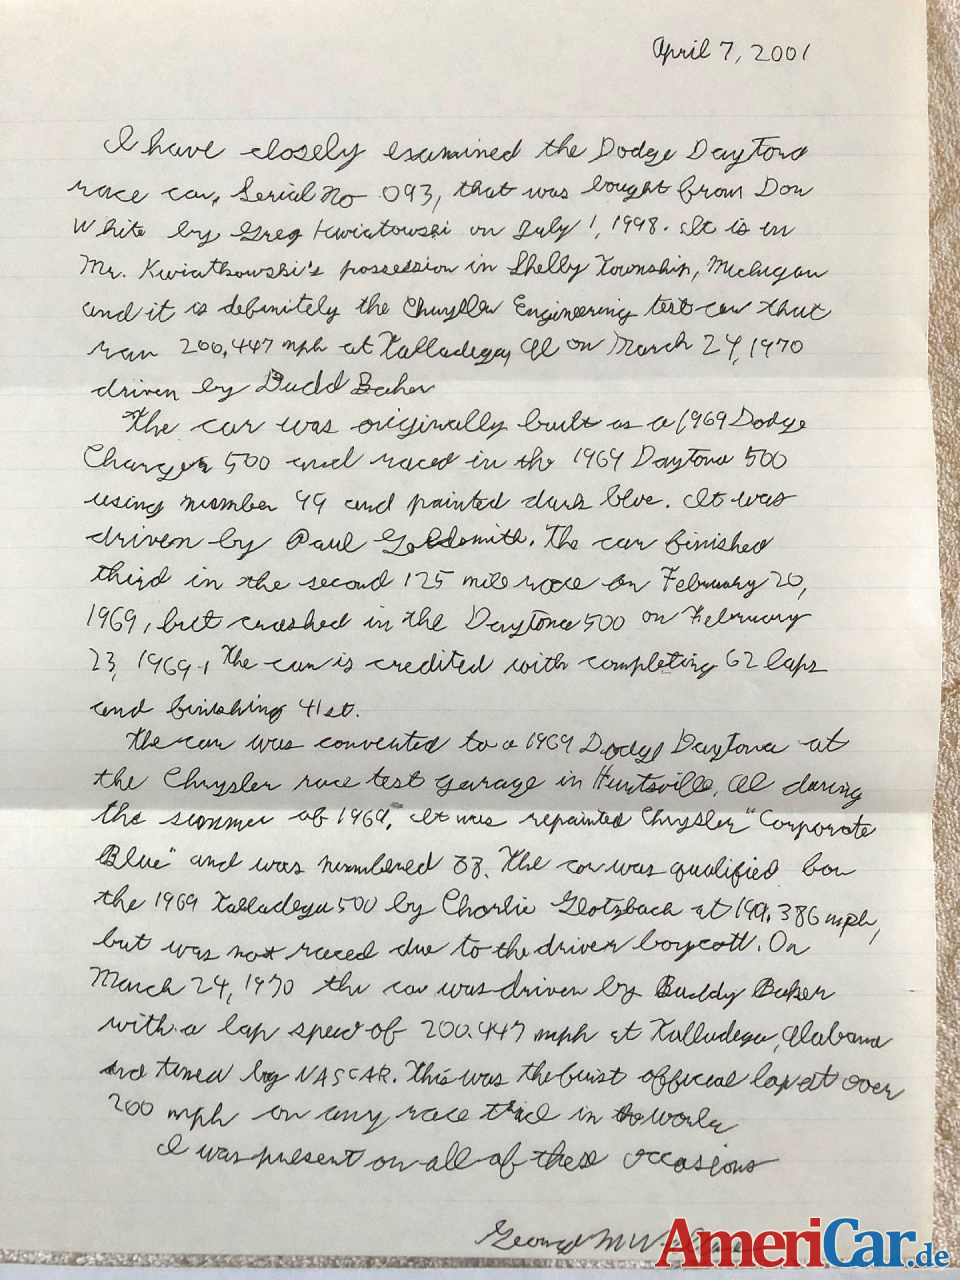 April 7, 2001
I have closely examined the Dodge Daytona
race car, Serial No 093, that was bought from Don
White by Greg Kwiatowski on July 1, 1998. It is in
Mr. Kwiatkowski's possession in Shelly Township, Michigan
and it is definitely the Chrysler Engineering test car that
ran 200.447 mph at Talladega, Al on March 24, 1970
driven by Budd Baker
The car was originally built as a 1969 Dodge
Charger 500 and raced in the 1969 Daytona 500
using number 99 and painted dark blue. It was
driven by Paul Goldsmith. The car finished
third in the second 125 mile race on February 20,
1969, but crashed in the Daytona 500 on February
23, 1969. The car is credited with completing 62 laps
and finishing 41st.
The car was converted to a 1969 Dodge Daytona at
the Chrysler race test garage in Huntsville, Al during
the summer of 1969. It was repainted Chrysler "Corporate
Blue" and was numbered 88. The car was qualified for
the 1969 Talladega 500 by Charlie Glotzbach at 199.386 mph,
but was not raced due to the driver boycott. On
March 24, 1970 the car was driven by Buddy Baker
with a lap speed of 200.447 mph at Talladega, Alabama
and timed by NASCAR. This was the first official lap at over
200 mph on any race track in the world
I was present on all of these occasions
George M
AmeriCar.de